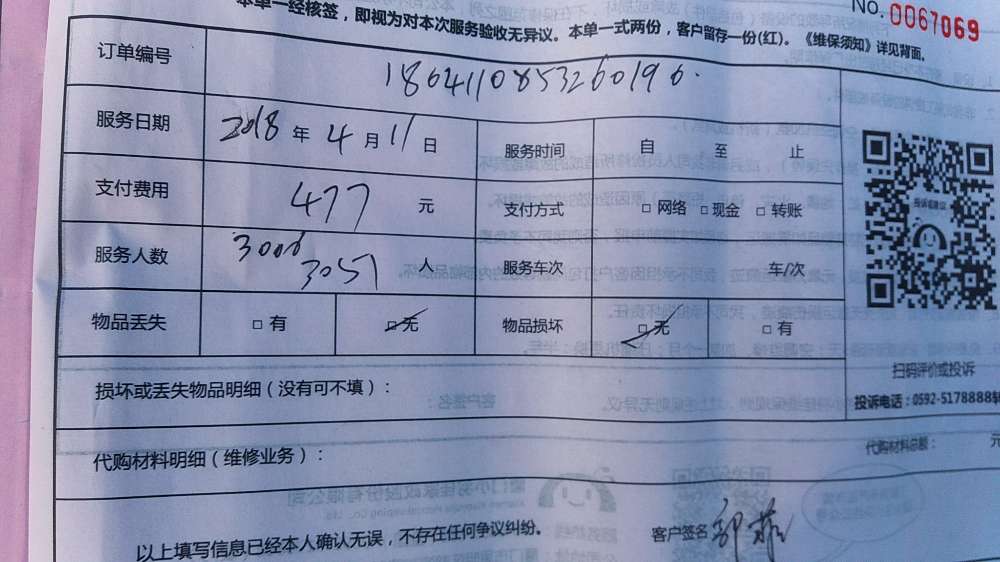 No. 0067069
本单一经核签，即视为对本次服务验收无异议。本单一式两份，客户留存一份(红)。《维保须知》详见背面。
订单编号 180411085326019 6.
服务日期 2018 年 4 月 11 日 服务时间 自 至 止
支付费用 477 元 支付方式 □ 网络 □ 现金 □ 转账
服务人数 3006 3057 人 服务车次 车/次
物品丢失 □ 有 □ 无 物品损坏 □ 无 □ 有
损坏或丢失物品明细（没有可不填）：
扫码评价或投诉
投诉电话：0592-5178888转
代购材料明细（维修业务）：
代购材料总额： 元
以上填写信息已经本人确认无误，不存在任何争议纠纷。
客户签名